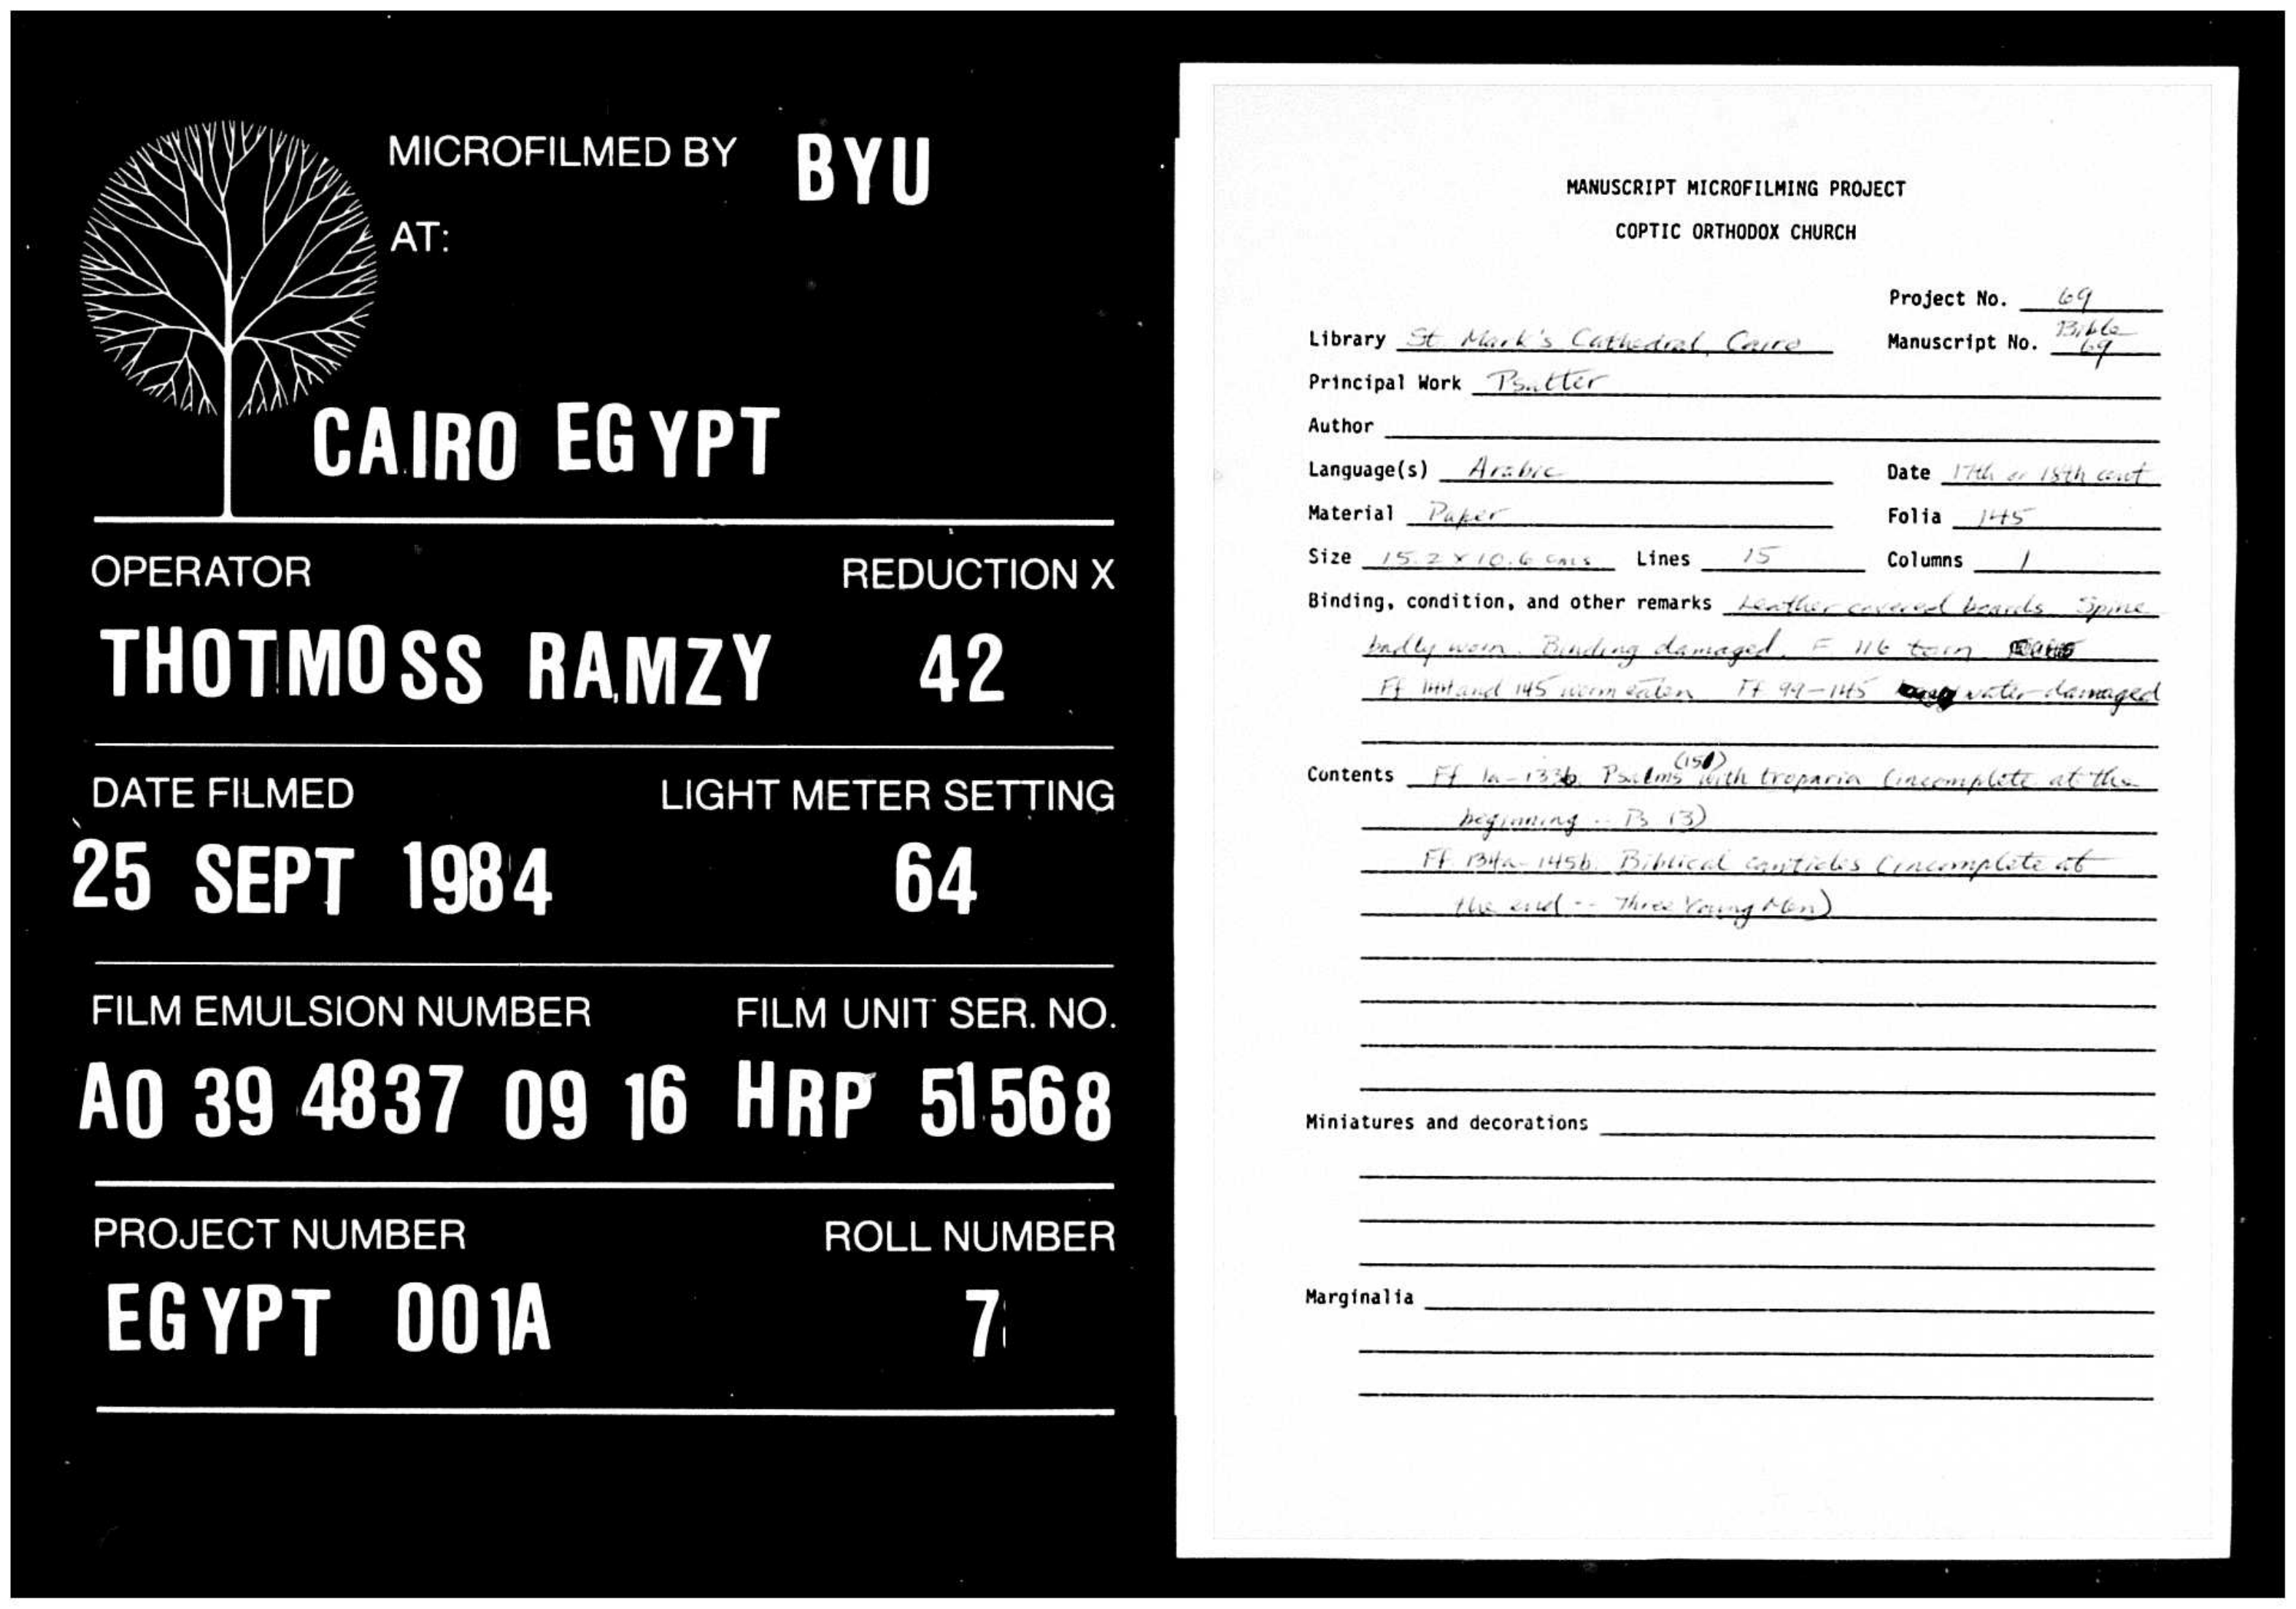 MICROFILMED BY BYU
AT:
CAIRO EGYPT
OPERATOR REDUCTION X
THOTMOSS RAMZY 42
DATE FILMED LIGHT METER SETTING
25 SEPT 1984 64
FILM EMULSION NUMBER FILM UNIT SER. NO.
A0 39 4837 09 16 HRP 51568
PROJECT NUMBER ROLL NUMBER
EGYPT 001A 7
MANUSCRIPT MICROFILMING PROJECT
COPTIC ORTHODOX CHURCH
Project No. 69
Library St. Mark's Cathedral, Cairo Manuscript No. Bible 69
Principal Work Psalter
Author
Language(s) Arabic Date 17th or 18th cent
Material Paper Folia 145
Size 15.2 x 10.6 cms Lines 15 Columns 1
Binding, condition, and other remarks Leather covered boards. Spine
badly worn. Binding damaged. F 116 torn.
Ff 144 and 145 worm eaten. Ff 99-145 water-damaged
Contents Ff 1a-133b. Psalms (151) with troparia (incomplete at the
beginning -- Ps 13)
Ff. 134a-145b. Biblical canticles (incomplete at
the end -- Three Young Men)
Miniatures and decorations
Marginalia